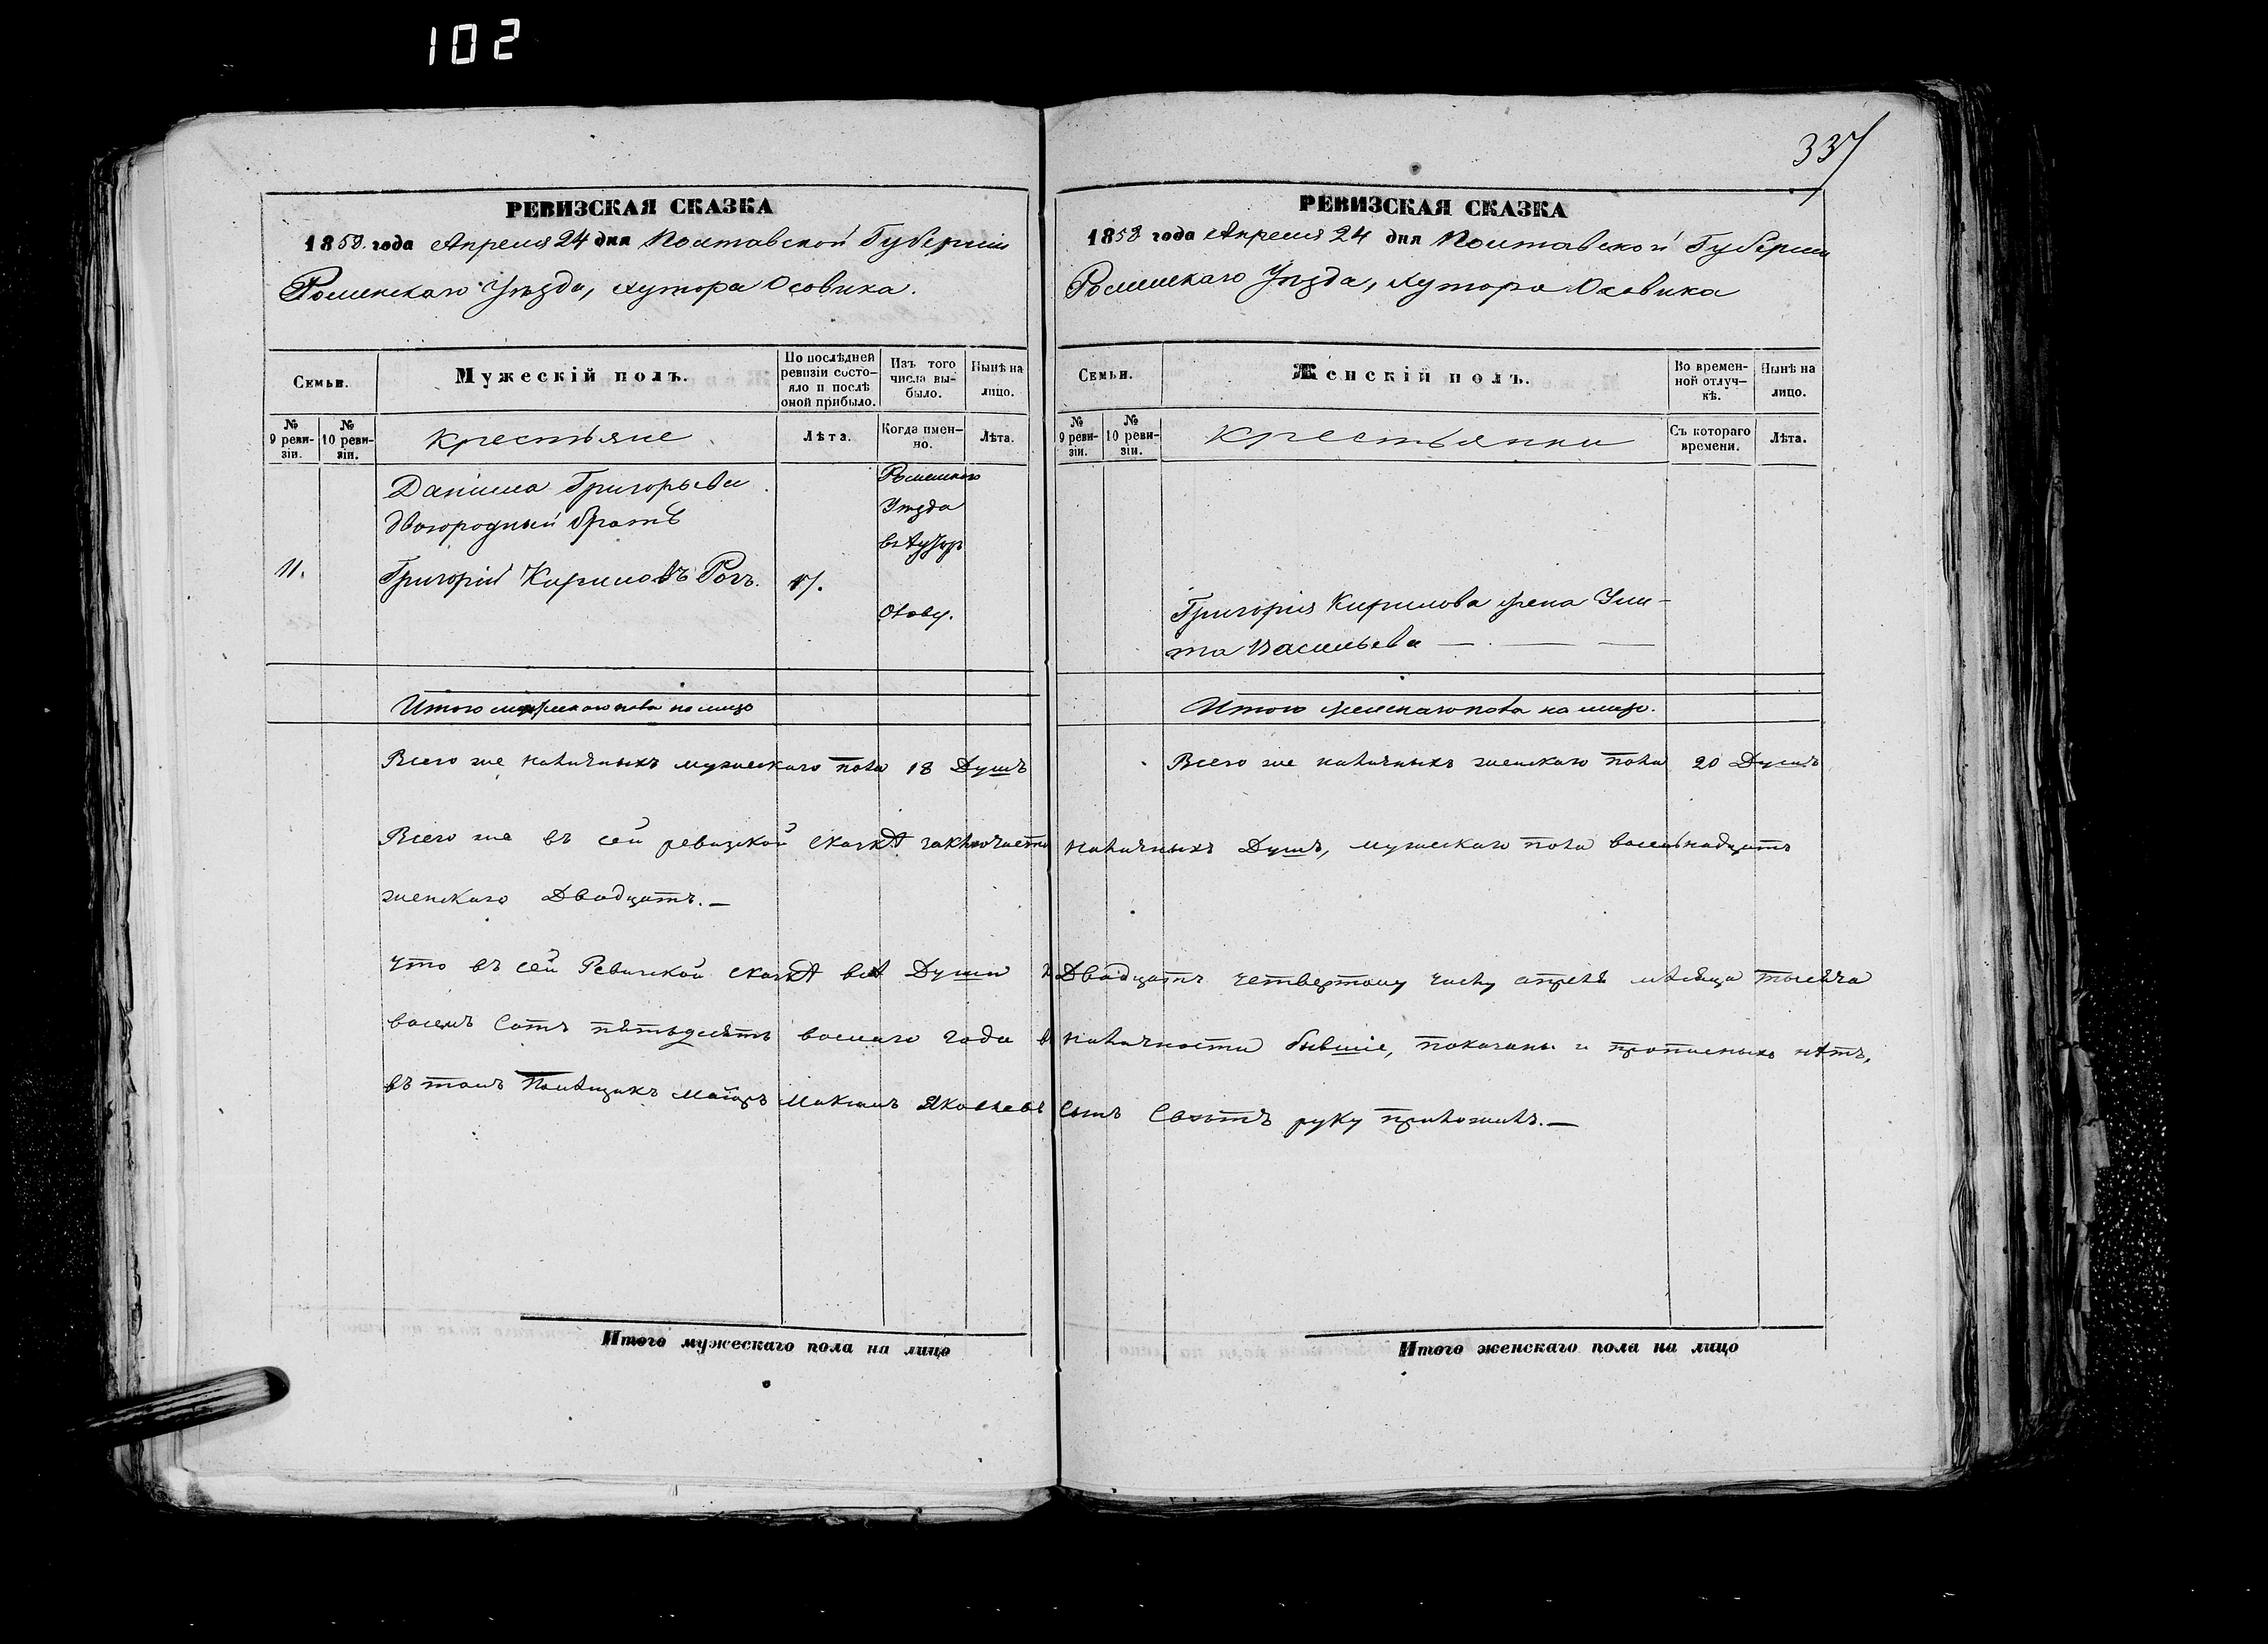 102
337
РЕВИЗСКАЯ СКАЗКА
1858 года Апреля 24 дня Полтавской Губерніи
Роменскаго Уѣзда, хутора Осовика.
Семьи.
Мужескій полъ.
По послѣдней ревизіи состояло и послѣ оной прибыло.
Изъ того числа выбыло.
Нынѣ на лицо.
№ 9 ревизіи.
№ 10 ревизіи.
Крестьяне
Лѣта.
Когда именно.
Лѣта.
Данила Григорьева
двоюродный братъ
11. Григорій Кириловъ Рогъ. 17.
Роменскаго
Уѣзда
Итого мужескаго пола на лицо
Всего же наличныхъ мужескаго пола 18 Душъ
РЕВИЗСКАЯ СКАЗКА
1858 года Апреля 24 дня Полтавской Губерніи
Роменскаго Уѣзда, хутора Осовика
Семьи.
Женскій полъ.
Во временной отлучкѣ.
Нынѣ на лицо.
№ 9 ревизіи.
№ 10 ревизіи.
Крестьянки
Съ котораго времени.
Лѣта.
Григорія Кирилова жена Ули-
та Васильева —
Итого женскаго пола на лицо.
Всего же наличныхъ женскаго пола 20 Душъ
Всего же въ сей ревизкой сказкѣ заключается наличныхъ Душъ, мужескаго пола восемьнадцать
женскаго Двадцать. —
Что въ сей Ревизкой сказкѣ всѣ Души к Двадцать четвертому числу апреля мѣсяца тысяча
восемь Сотъ пятьдесятъ восмаго года в наличности бывшіе, показаны и прописныхъ нѣтъ,
въ томъ Помѣщикъ маіоръ Максимъ Яковлевъ Сынъ руку приложилъ. —
Итого мужескаго пола на лицо
Итого женскаго пола на лицо